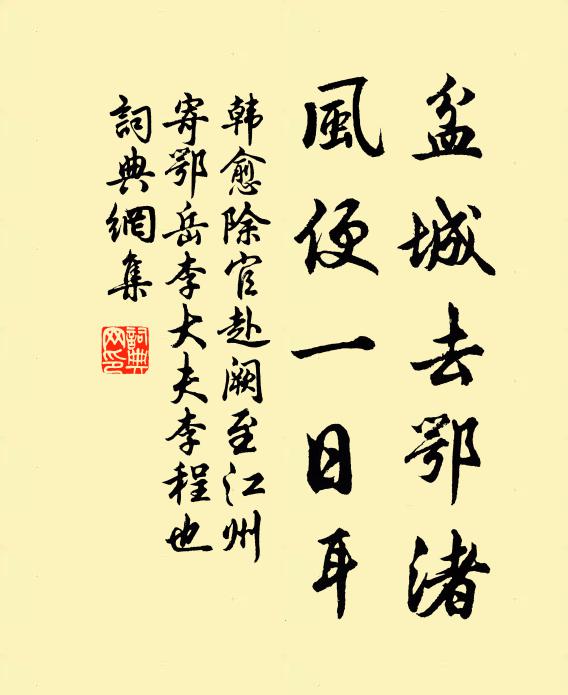 盆城去鄂渚
風便一日耳
韩愈除官赴阙至江州
寄鄂岳李大夫李程也
詞典網集
詞典網印